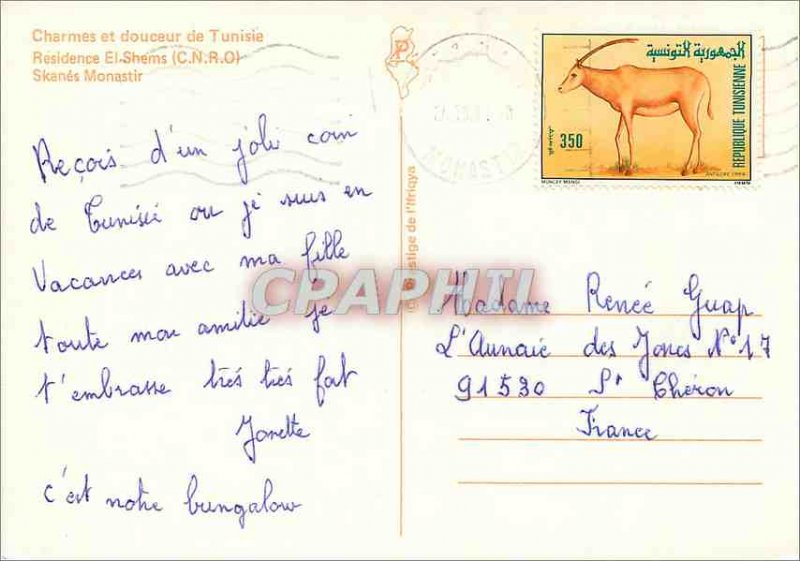 Charmes et douceur de Tunisie
Résidence El-Shems (C.N.R.O)
Skanés Monastir
Reçois d'un joli coin
de Tunisie ou je suis en
Vacances avec ma fille
toute mon amitié je
t'embrasse très très fort
c'est notre bungalow
P
stige de l'Ifriqya
الجمهورية التونسية
REPUBLIQUE TUNISIENNE
350
CPAPHIL
Madame Renée Guap
L'Aunaie des Joncs N° 17
91530 St Chéron
France